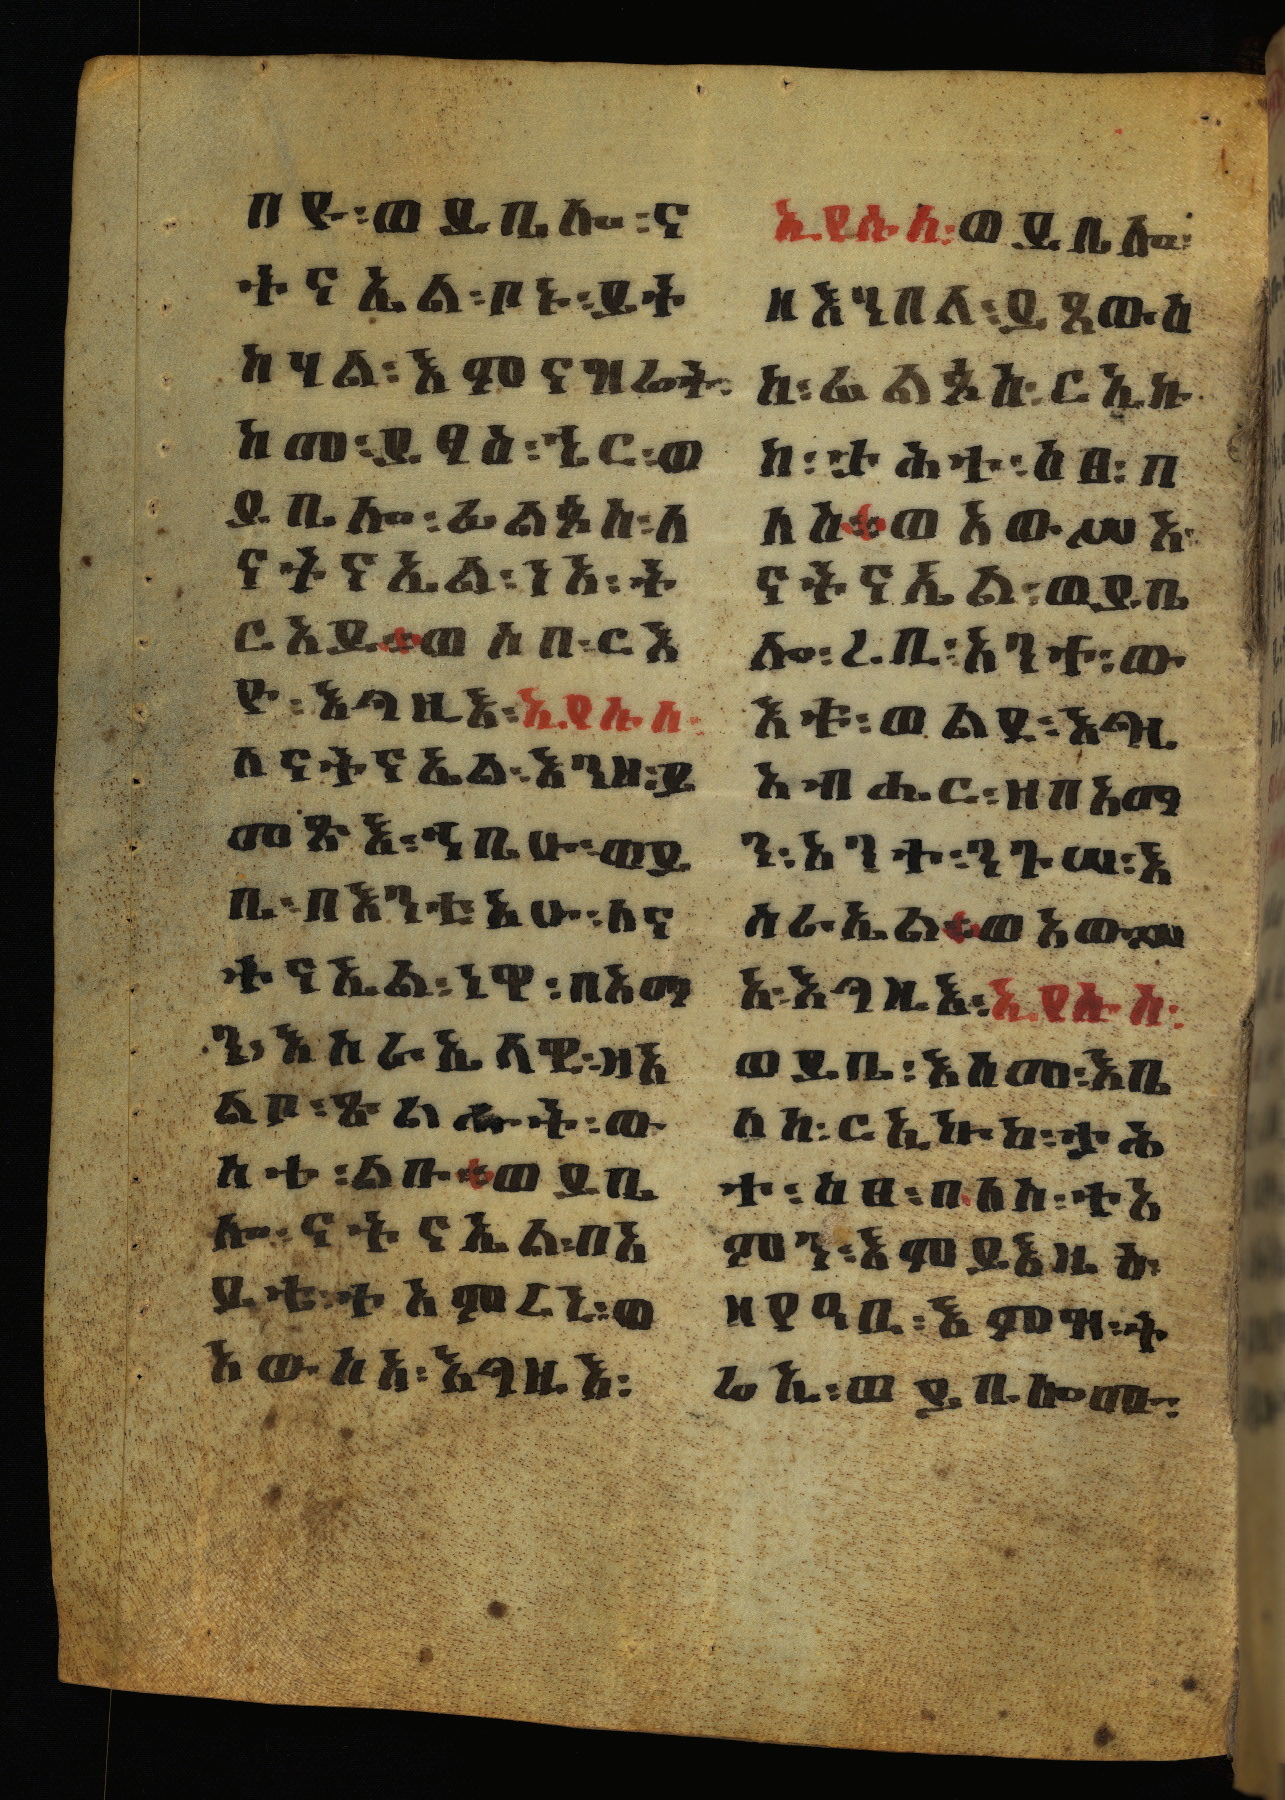 በዩ፡ወይቤሎ፡ና
ትናኤል፡ቦኑ፡ይት
ከሃል፡እምናዝሬት፡
ከመ፡ይፃእ፡ኄር፡ወ
ይቤሎ፡ፊልጶስ፡ለ
ናትናኤል፡ነአ፡ት
ርአይ፨ወሶበ፡ርእ
ዮ፡እግዚእ፡ኢየሱስ፡
ለናትናኤል፡እንዘ፡ይ
መጽእ፡ኀቤሁ፡ወይ
ቤ፡በእንቲኣሁ፡ለና
ትናኤል፡ነዋ፡በአማ
ን፡እስራኤላዊ፡ዘአ
ልቦ፡ጽልሑት፡ው
ስቴ፡ልቡ፨ወይቤ
ሎ፡ናትናኤል፡በአ
ይቴ፡ተአምረኒ፡ወ
አውሥአ፡እግዚእ፡
ኢየሱስ፡ወይቤሎ፡
ዘእንበለ፡ይጼውዕ
ከ፡ፊልጶስ፡ርኢኩ
ከ፡ታሕተ፡ዕፀ፡በ
ለስ፨ወአውሥአ፡
ናትናኤል፡ወይቤ
ሎ፡ረቢ፡አንተ፡ው
እቱ፡ወልደ፡እግዚ
አብሔር፡ዘበአማ
ን፡አንተ፡ንጉሠ፡እ
ስራኤል፨ወአውሥ
አ፡እግዚእ፡ኢየሱስ፡
ወይቤ፡እስመ፡እቤ
ለከ፡ርኢኩከ፡ታሕ
ተ፡ዕፀ፡በለስ፡ተአ
ምን፡እምይእዜሰ፡
ዘየዓቢ፡እምዝ፡ት
ሬኢ፡ወይቤሎሙ፡